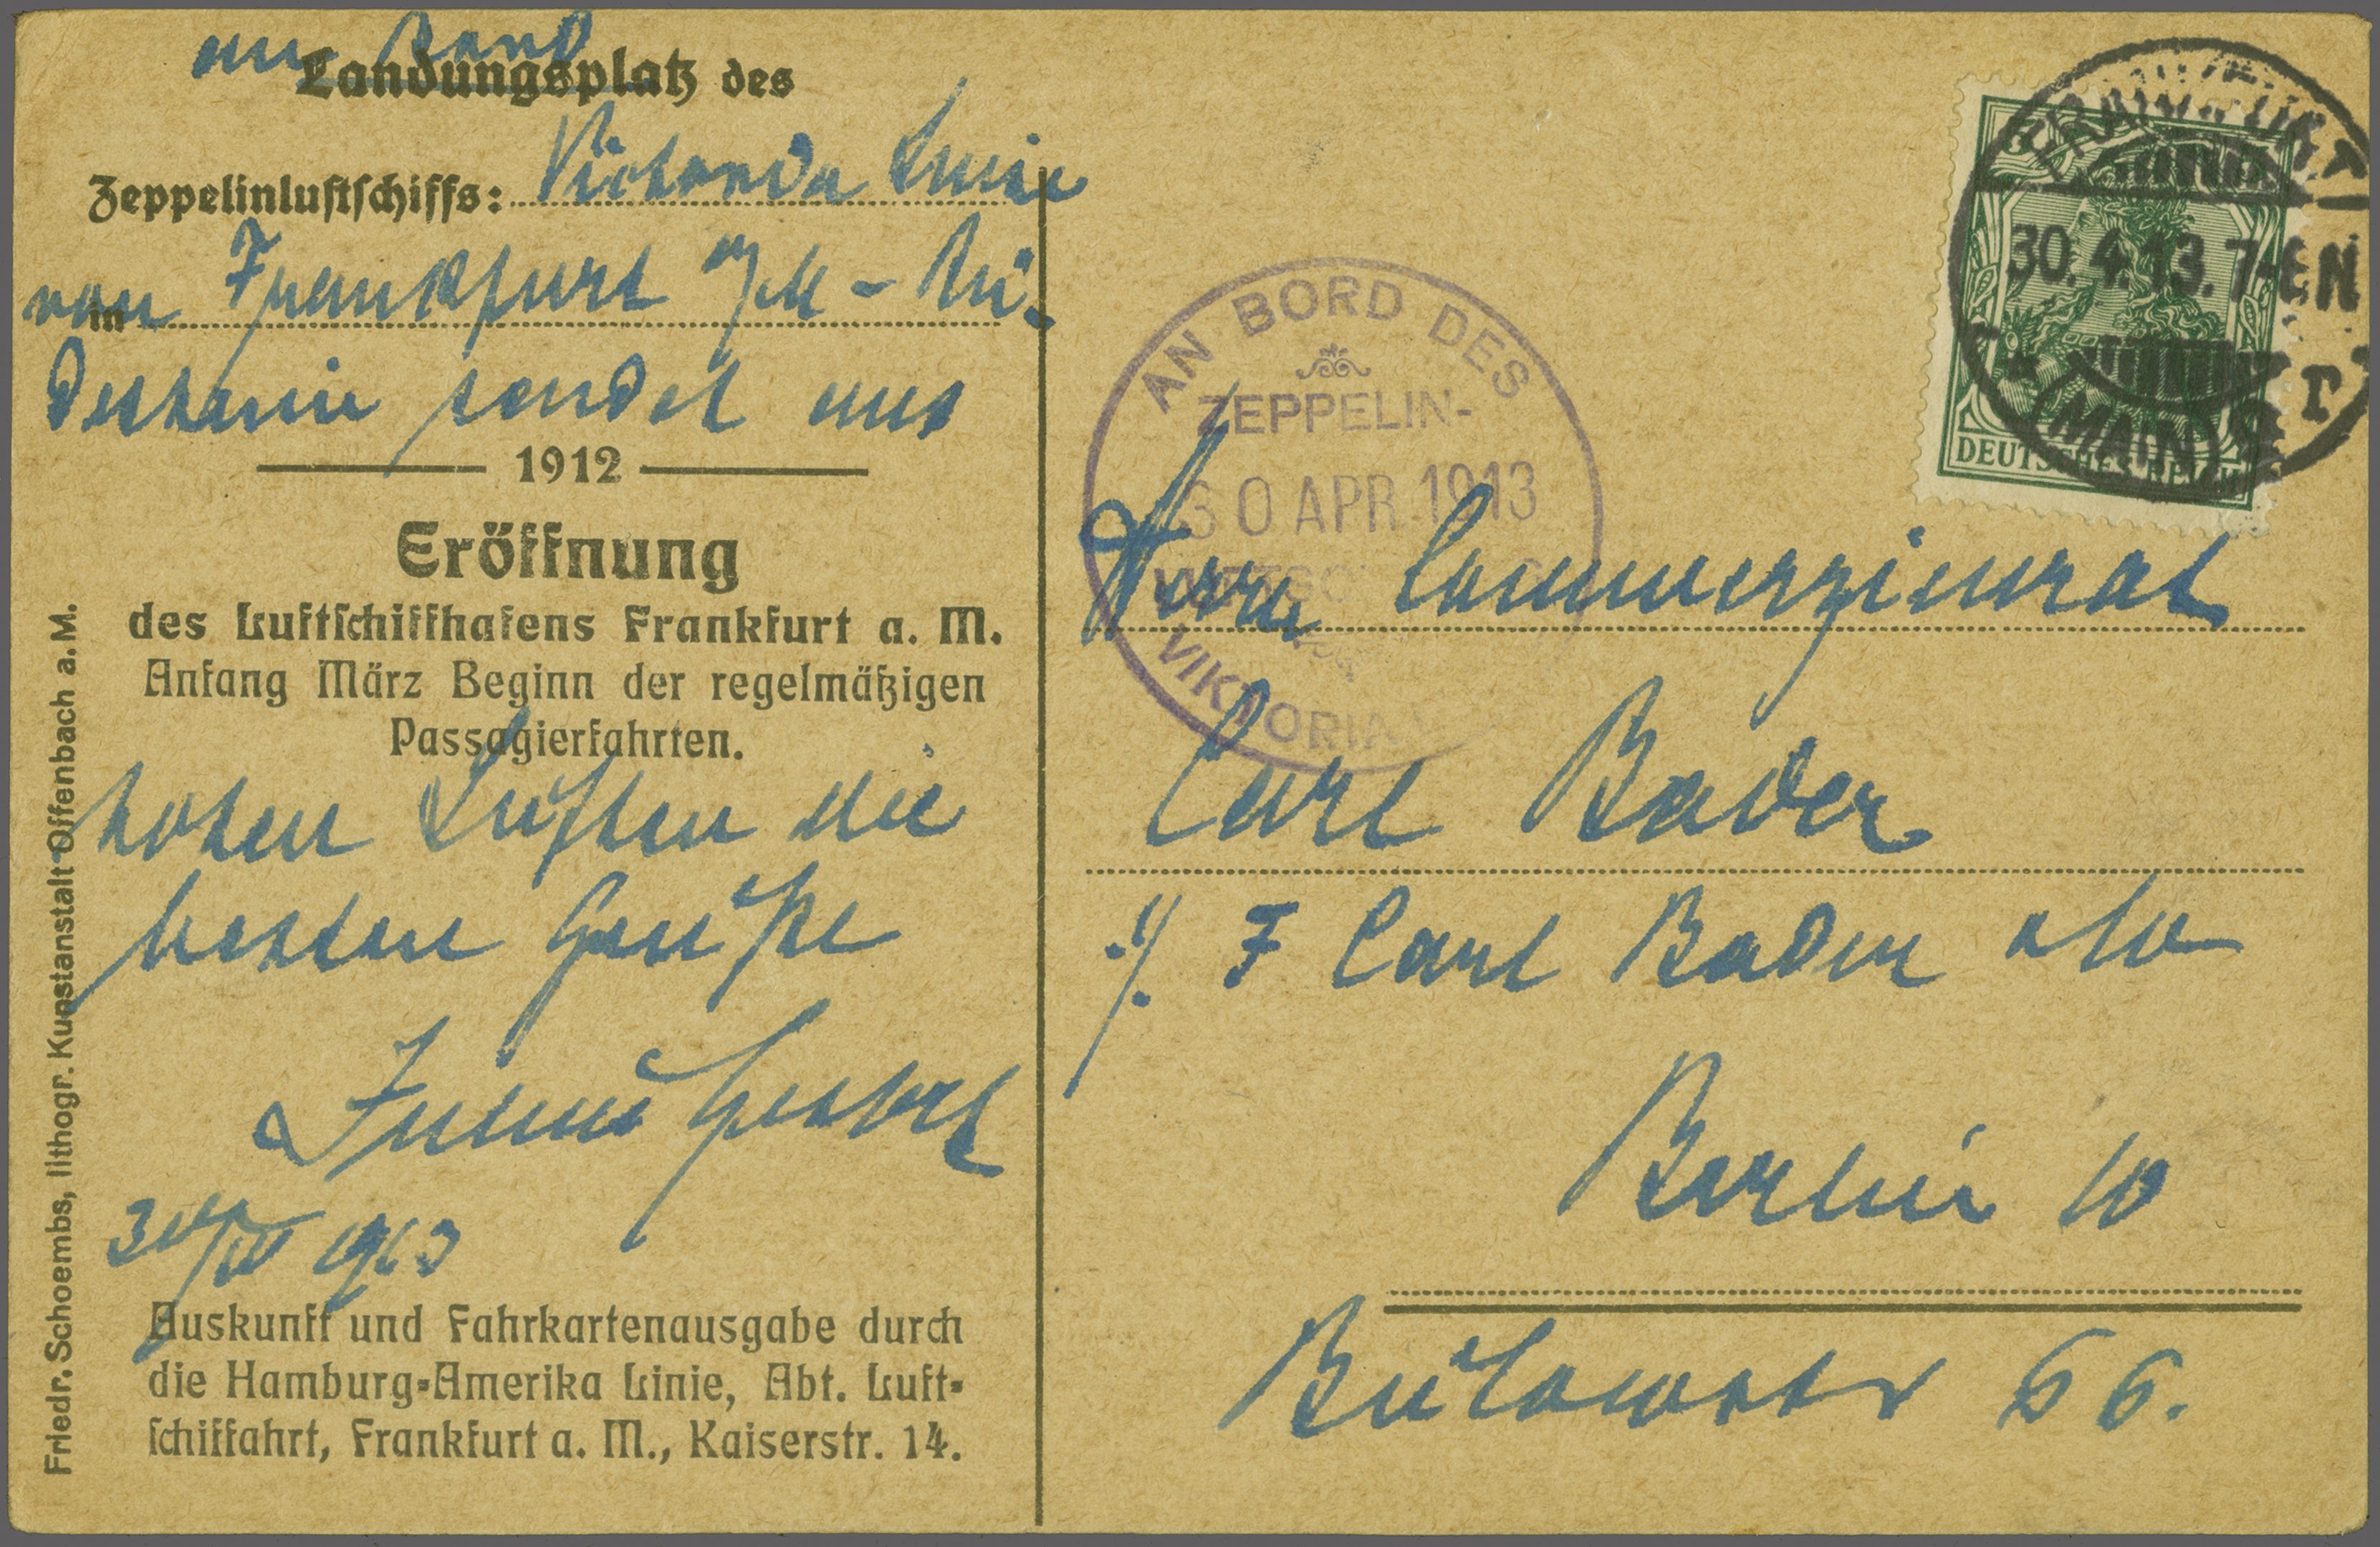 an Bord
Landungsplatz des
Zeppelinluftschiffs: Victoria Luise
in von Frankfurt a/M - Rü-
desheim sendet aus
1912
Eröffnung
des Luftschiffhafens Frankfurt a. M.
Anfang März Beginn der regelmäßigen
Passagierfahrten.
hohen Lüften die
besten Grüße
30/IV 1913
Auskunft und Fahrkartenausgabe durch
die Hamburg-Amerika Linie, Abt. Luft-
schiffahrt, Frankfurt a. M., Kaiserstr. 14.
Friedr. Schoembs, lithogr. Kunstanstalt Offenbach a. M.
AN BORD DES
ZEPPELIN-
30 APR. 1913
VIKTORIA
FRANKFURT
30.4.13. 7-8N
(MAIN)
DEUTSCHES REICH
Herrn Commerzienrat
Carl Bader
F Carl Bader
Berlin W
Bülowstr 66.